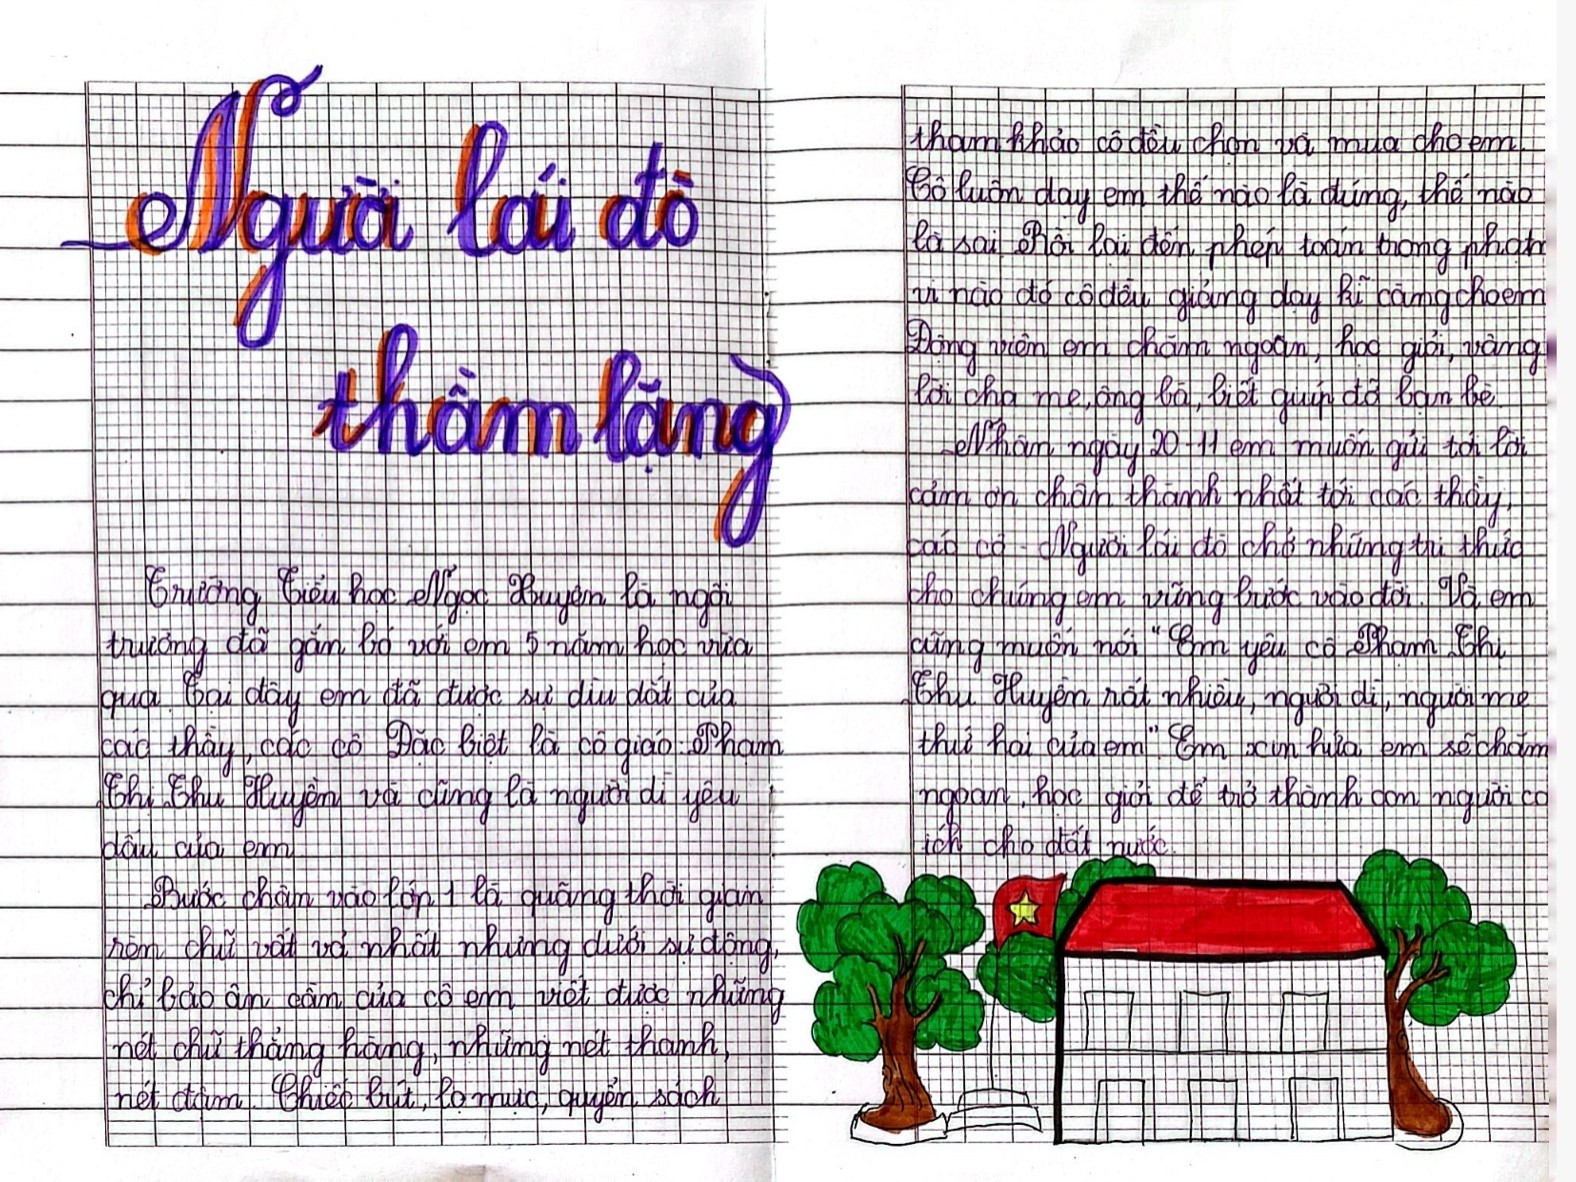 Người lái đò
thầm lặng
Trường Tiểu học Ngọc Xuyên là ngôi
trường đã gắn bó với em 5 năm học vừa
qua. Tại đây em đã được sự dìu dắt của
các thầy, các cô. Đặc biệt là cô giáo: Phạm
Thị Thu Huyền và cũng là người dì yêu
dấu của em.
Bước chân vào lớp 1 là quãng thời gian
rèn chữ vất vả nhất nhưng dưới sự động,
chỉ bảo ân cần của cô em viết được những
nét chữ thẳng hàng, những nét thanh,
nét đậm. Chiếc bút, lọ mực, quyển sách
tham khảo cô đều chọn và mua cho em.
Cô luôn dạy em thế nào là đúng, thế nào
là sai. Rồi lại đến phép toán trong phạm
vi nào đó cô đều giảng dạy kĩ càng cho em
Động viên em chăm ngoan, học giỏi, vâng
lời cha mẹ, ông bà, biết giúp đỡ bạn bè.
Nhân ngày 20-11 em muốn gửi tới lời
cảm ơn chân thành nhất tới các thầy,
các cô - Người lái đò chở những tri thức
cho chúng em vững bước vào đời. Và em
cũng muốn nói "Em yêu cô Phạm Thị
Thu Huyền rất nhiều, người dì, người mẹ
thứ hai của em". Em xin hứa em sẽ chăm
ngoan, học giỏi để trở thành con người có
ích cho đất nước.